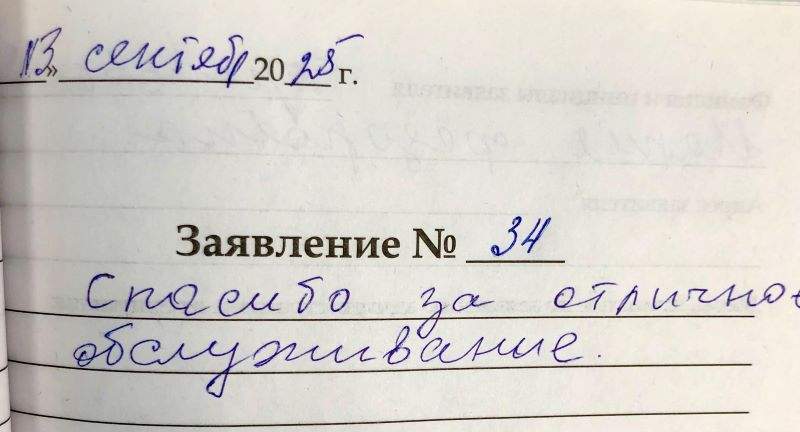 13» сентябр 2025 г.
Заявление № 34
Спасибо за отличное
обслуживание.